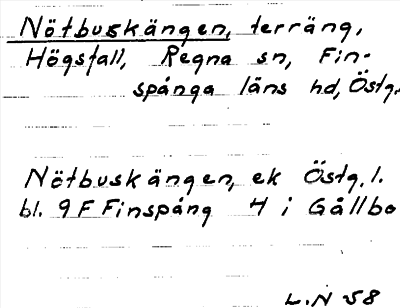 Nötbuskängen, terräng,
Högsfall, Regna sn, Fin-
spånga läns hd, Östg.
Nötbuskängen, ek Östg. l.
bl. 9 F Finspång H i Gållbo
L.N 58